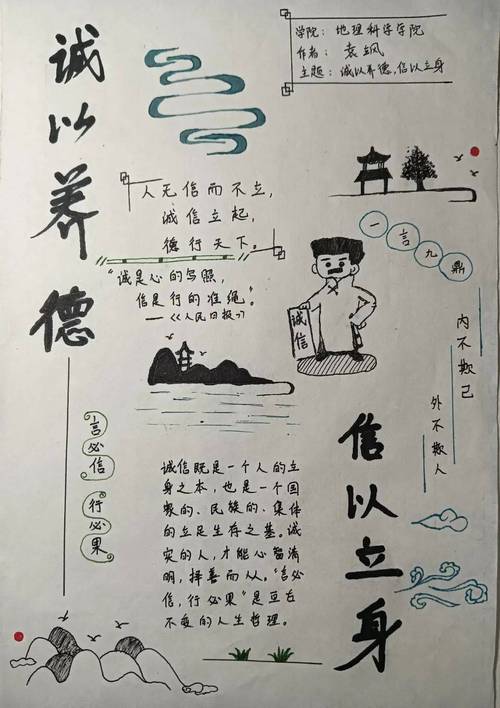 诚以养德
学院：地理科学学院
作者：袁飒
主题：诚以养德，信以立身
人无信而不立，
诚信立起，
德行天下。
“诚是心的写照，
信是行的准绳”。
——《人民日报》
一言九鼎
诚信
内不欺己
外不欺人
言必信
行必果
信以立身
诚信既是一个人的立
身之本，也是一个国
家的、民族的、集体
的立足生存之基。诚
实的人，才能心智清
明，择善而从。“言必
信，行必果”是亘古
不变的人生哲理。